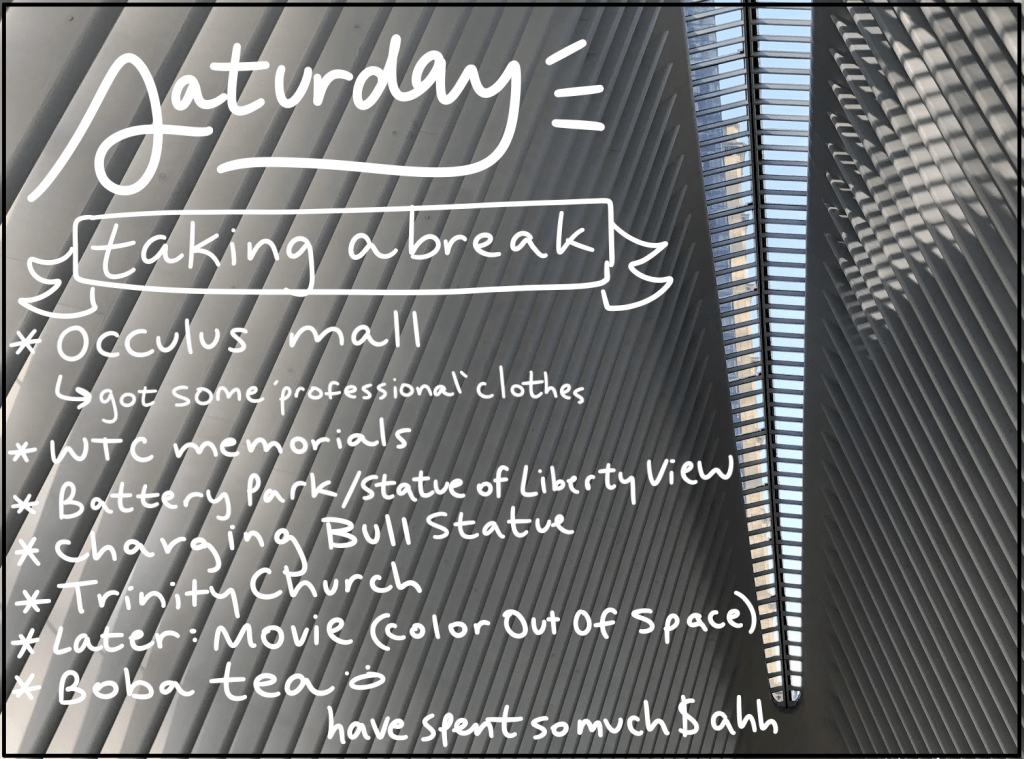 Saturday
taking a break
* Occulus mall
↳ got some 'professional' clothes
* WTC memorials
* Battery Park/Statue of Liberty View
* Charging Bull Statue
* Trinity Church
* Later: Movie (Color Out Of Space)
* Boba tea :)
have spent so much $ ahh